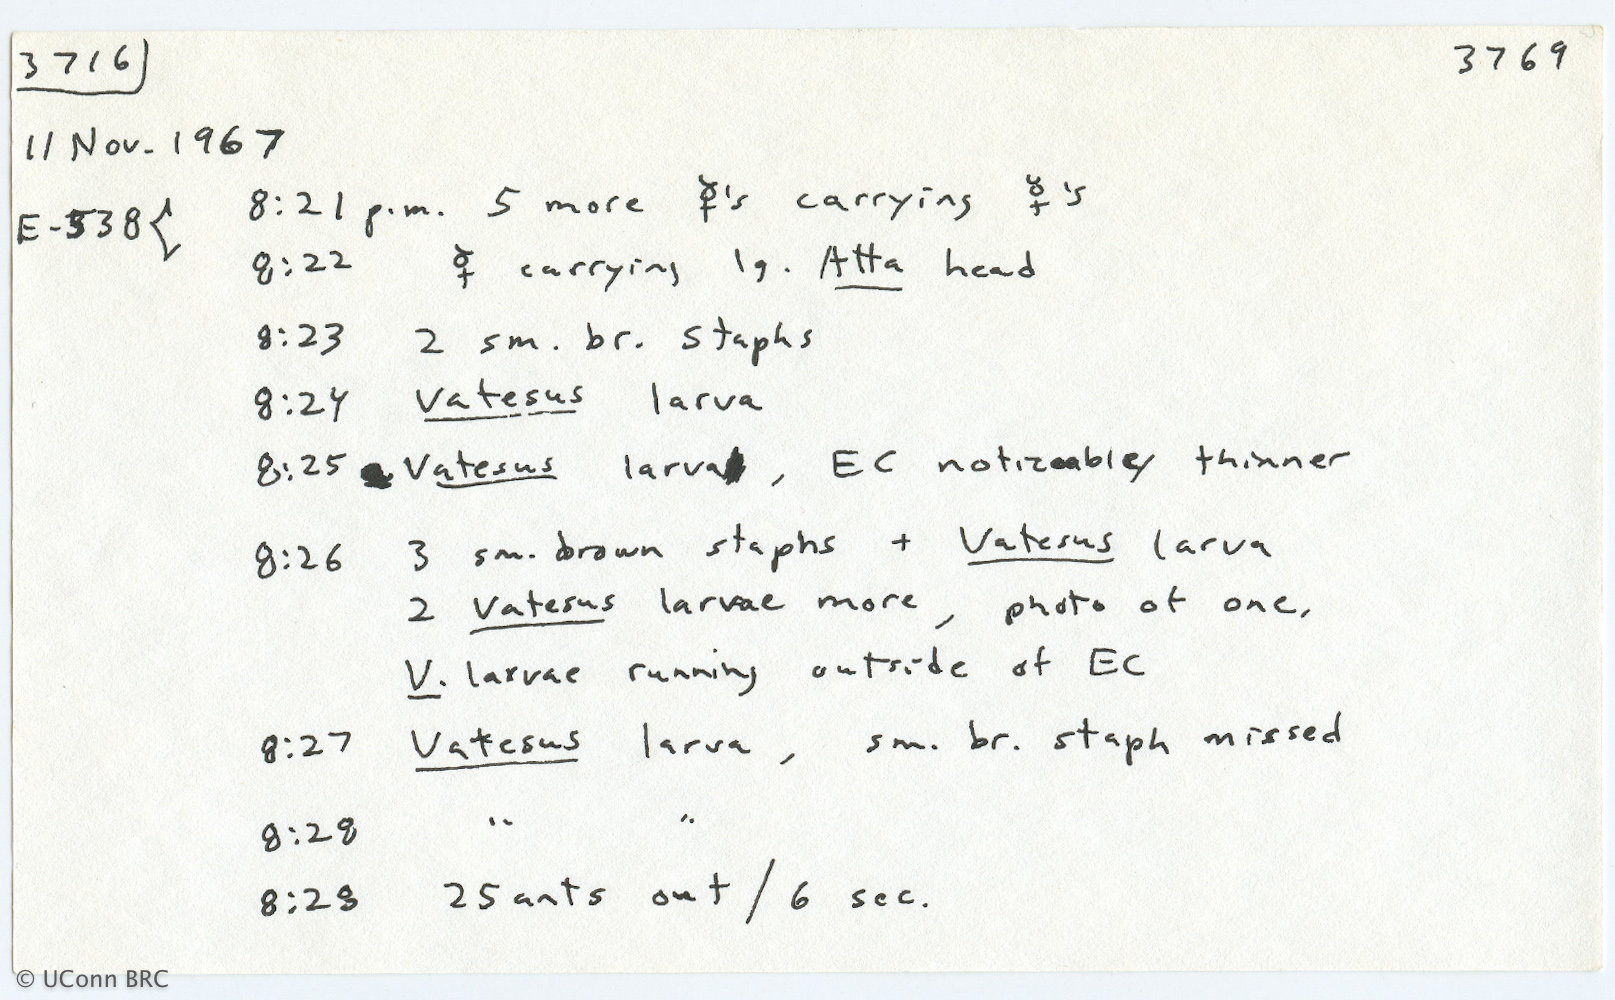 3716 3769
11 Nov. 1967
E-538{ 8:21 p.m. 5 more ☿'s carrying ☿'s
8:22 ☿ carrying lg. Atta head
8:23 2 sm. br. staphs
8:24 Vatesus larva
8:25 Vatesus larva, EC noticeably thinner
8:26 3 sm. brown staphs + Vatesus larva
2 Vatesus larvae more, photo of one,
V. larvae running outside of EC
8:27 Vatesus larva, sm. br. staph missed
8:28 " "
8:28 25 ants out / 6 sec.
© UConn BRC